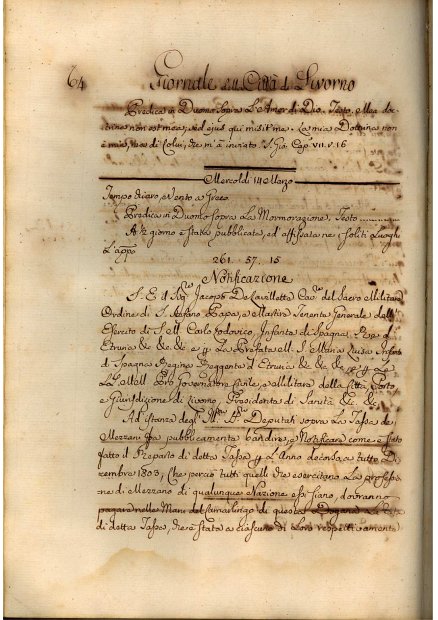 64 Giornale della Città di Livorno
Predica in Duomo sopra L'Amor di Dio. Testo. Mea doc-
trina non est mea, sed ejus qui misit me. La mia Dottrina non
è mia, ma di Colui, che m'à inviato. S. Gio. Cap. VII. v. 16
Mercoldì 14 Marzo
Tempo chiaro, e Vento a Greco
Predica in Duomo sopra La Mormorazione, Testo
A giorno è stata pubblicata, ed affissata ne i soliti Luoghi
L'app.
261. 57. 15
Notificazione
S. E. il Sig.r Jacopo De Lavillette Cav. del Sacro e Militare
Ordine di S. Stefano Papa, e Martire Tenente Generale dell'
Esercito di S. M. Carlo Lodovico, Infante di Spagna Re d'
Etruria &c. &c. &c. e p. La Prefata M. S. Maria Luisa Infanta
di Spagna Regina Reggente d'Etruria &c. &c. &c. e p. Le
LL. MM. Loro Governatore Civile, e Militare della Città, Porto
e Giurisdizione di Livorno, Presidente di Sanità &c. &c.
Ad istanza degl' Deputati sopra La Tassa de
Mezzani fa pubblicamente bandire, e Notificare come è stato
fatto il Reparto di detta Tassa p. L'Anno decorso, a tutto Di-
cembre 1803; Che perciò tutti quelli che esercitano La profess-
ne di Mezzano di qualunque Nazione essi siano, dovranno
pagare nelle Mani del Camarlingo di questa Dogana La
di detta Tassa, che è stata a ciascuno di Loro respettivamente